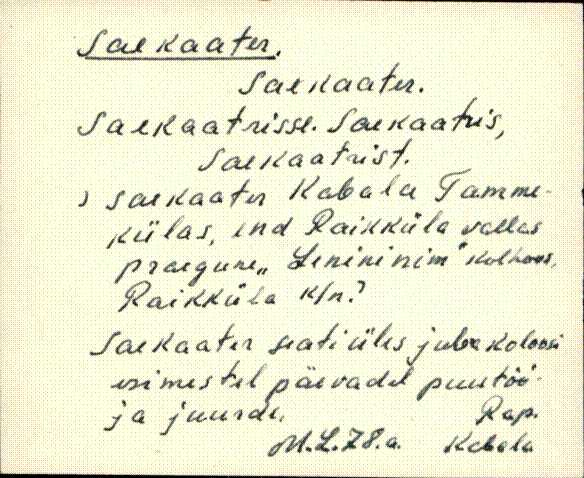 Saekaater.
Saekaater.
Saekaatrisse. Saekaatris,
Saekaatrist.
) saekaater Kabala Tamme-
külas, end Raikküla vallas
praegune „Lenininim" kolhoos,
Raikküla k/n.)
Saekaater seati üles juba koloosi
esimestel päevadel puutöö-
ja juurde.
Rap.
M.L.78.a. Kabala